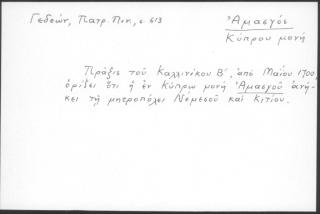 Γεδεών, Πατρ. Πιν., σ 613
Ἀμασγός
Κύπρου μονή
Πρᾶξις τοῦ Καλλινίκου Β΄, ἀπό Μαΐου 1700,
ὁρίζει ὅτι ἡ ἐν Κύπρῳ μονή Ἀμασγοῦ ἀνή-
κει τῇ μητροπόλει Νεμεσοῦ καί Κιτίου.